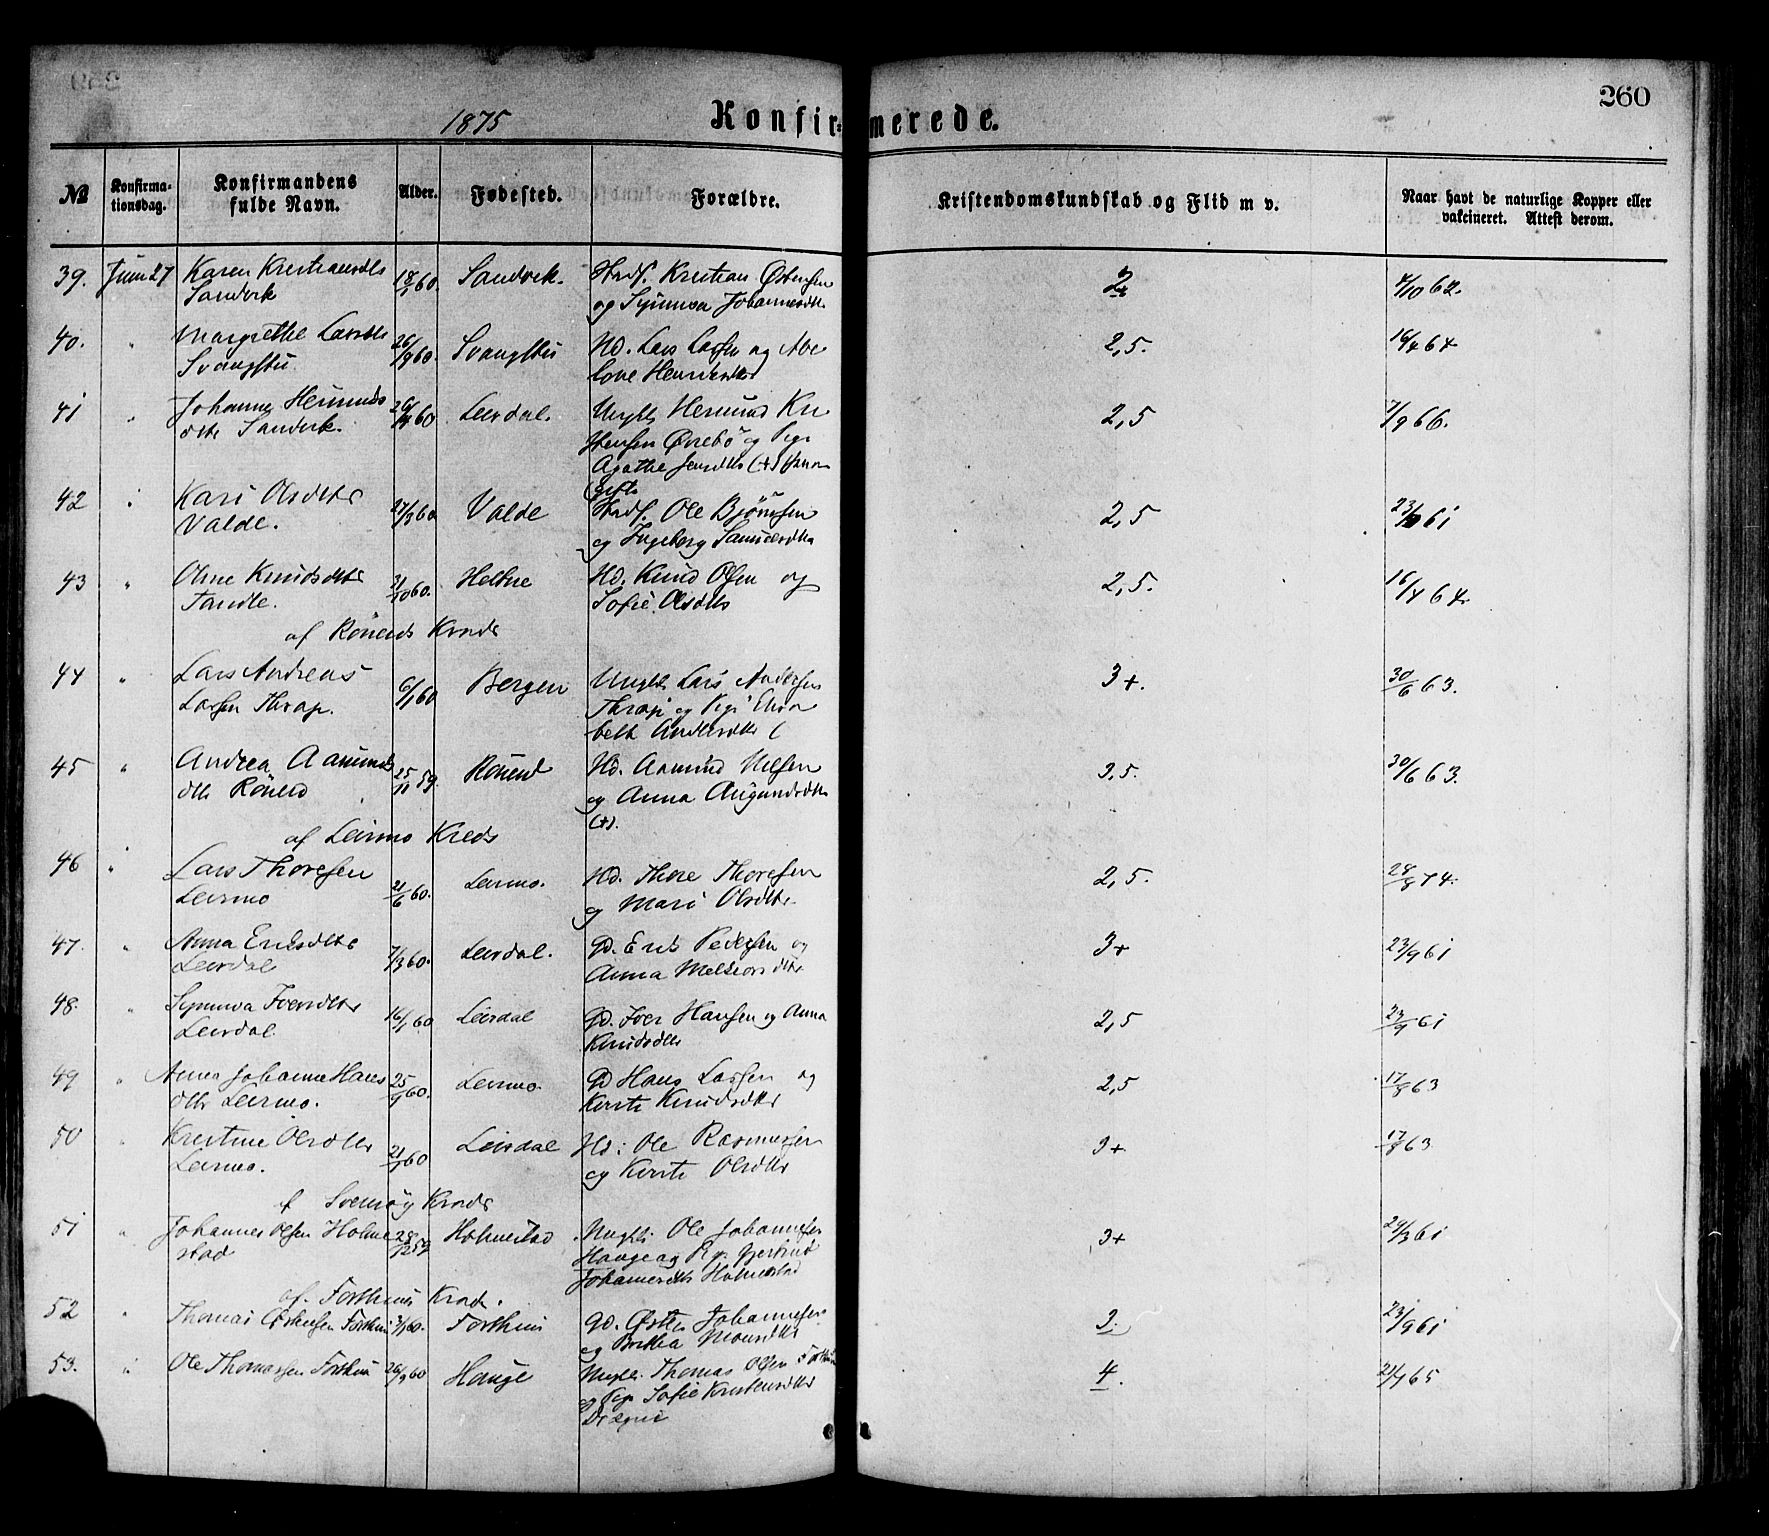 260
1875
Konfirmerede.
№
Konfirmationsdag.
Konfirmandens fulde Navn.
Alder.
Fødested.
Forældre.
Kristendomskundskab og Flid m v.
Naar havt de naturlige Kopper eller vakcineret. Attest derom.
39. Juni 27 Karen Kristiansdtr 18/1 60. Sandvik. Kristian Østensen 2 4/10 62.
Sandvik og Synneva Johannesdtr
40. " Margrethe Larsdtr 26/9 60. Svangstu Hd. Lars Larsen og Abe 2,5. 16/4 64
Svangstu lone Henriksdtr
41 " Johanna Hermunds 60 Leirdal. Ungk. Hermund Kri 2,5 7/9 66.
dtr Sandvik. stensen Øvrebø og Pige
Agathe Jensdtr (+)
gifte
42 " Kari Olsdtr 27/3 60 Valde Ole Bjørnsen 2,5 61
Valde. og Ingeborg Samuelsdtr
43 " Oline Knudsdtr 3/10 60. Heltne Hd. Knud Olsen og 2,5. 16/4 64
Tandle. Sofie Olsdtr
af Røneids Kreds
44 " Lars Andreas 6/1 60 Bergen Ungk. Lars Andersen 3+. 30/6 63.
Larsen Thrap. Thrap og Pige Elisa
beth Andersdtr (
45 " Andrea Aamunds 25/11 59. Røneid Hd. Aamund Nilsen 3,5. 30/6 63.
dtr Røneid og Anna Augundsdtr
(+).
af Leirmo Kreds
46 " Lars Thoresen 21/6 60. Leirmo. Hd. Thore Thoresen 2,5. 28/8 74.
Leirmo og Mari Olsdtr
47. " Anna Eriksdtr 7/3 60. Leirdal. Gd. Erik Pedersen og 3+ 23/9 61
Leirdal Anna Melkiorsdtr
48. " Synneva Iversdtr 16/1 60 Leirdal Gd. Iver Hansen og Anna 2,5 23/9 61
Leirdal Knudsdtr
49 " Anna Johanne Hans 25/9 60. Leirmo. Gd Hans Larsen og 2,5 17/8 63
dtr Leirmo. Kirsti Knudsdtr
50 " Kristine Olsdtr 21/1 60 Leirdal Hd. Ole Rasmussen 3+ 17/8 63
Leirmo. og Kirsti Olsdtr
af Svensøy Kreds
51 " Johannes Olsen Holme 28/12 59 Holmestad Ungk. Ole Johannesen 3+ 29/3 61
stad Hauge og Pige Gjertrud
Johannesdtr Holmestad
af Forthuns Kreds.
52 " Thomas Østensen Forthun 3/1 60. Forthun Gd. Østen Johannesen 3. 23/9 61
og Brithe Monsdtr
53. " Ole Thomassen Forthun 26/9 60 Hauge Ungk. Thomas Olsen Forthun 4. 21/7 65
og Pige Sofie Kristensdtr
Drægni